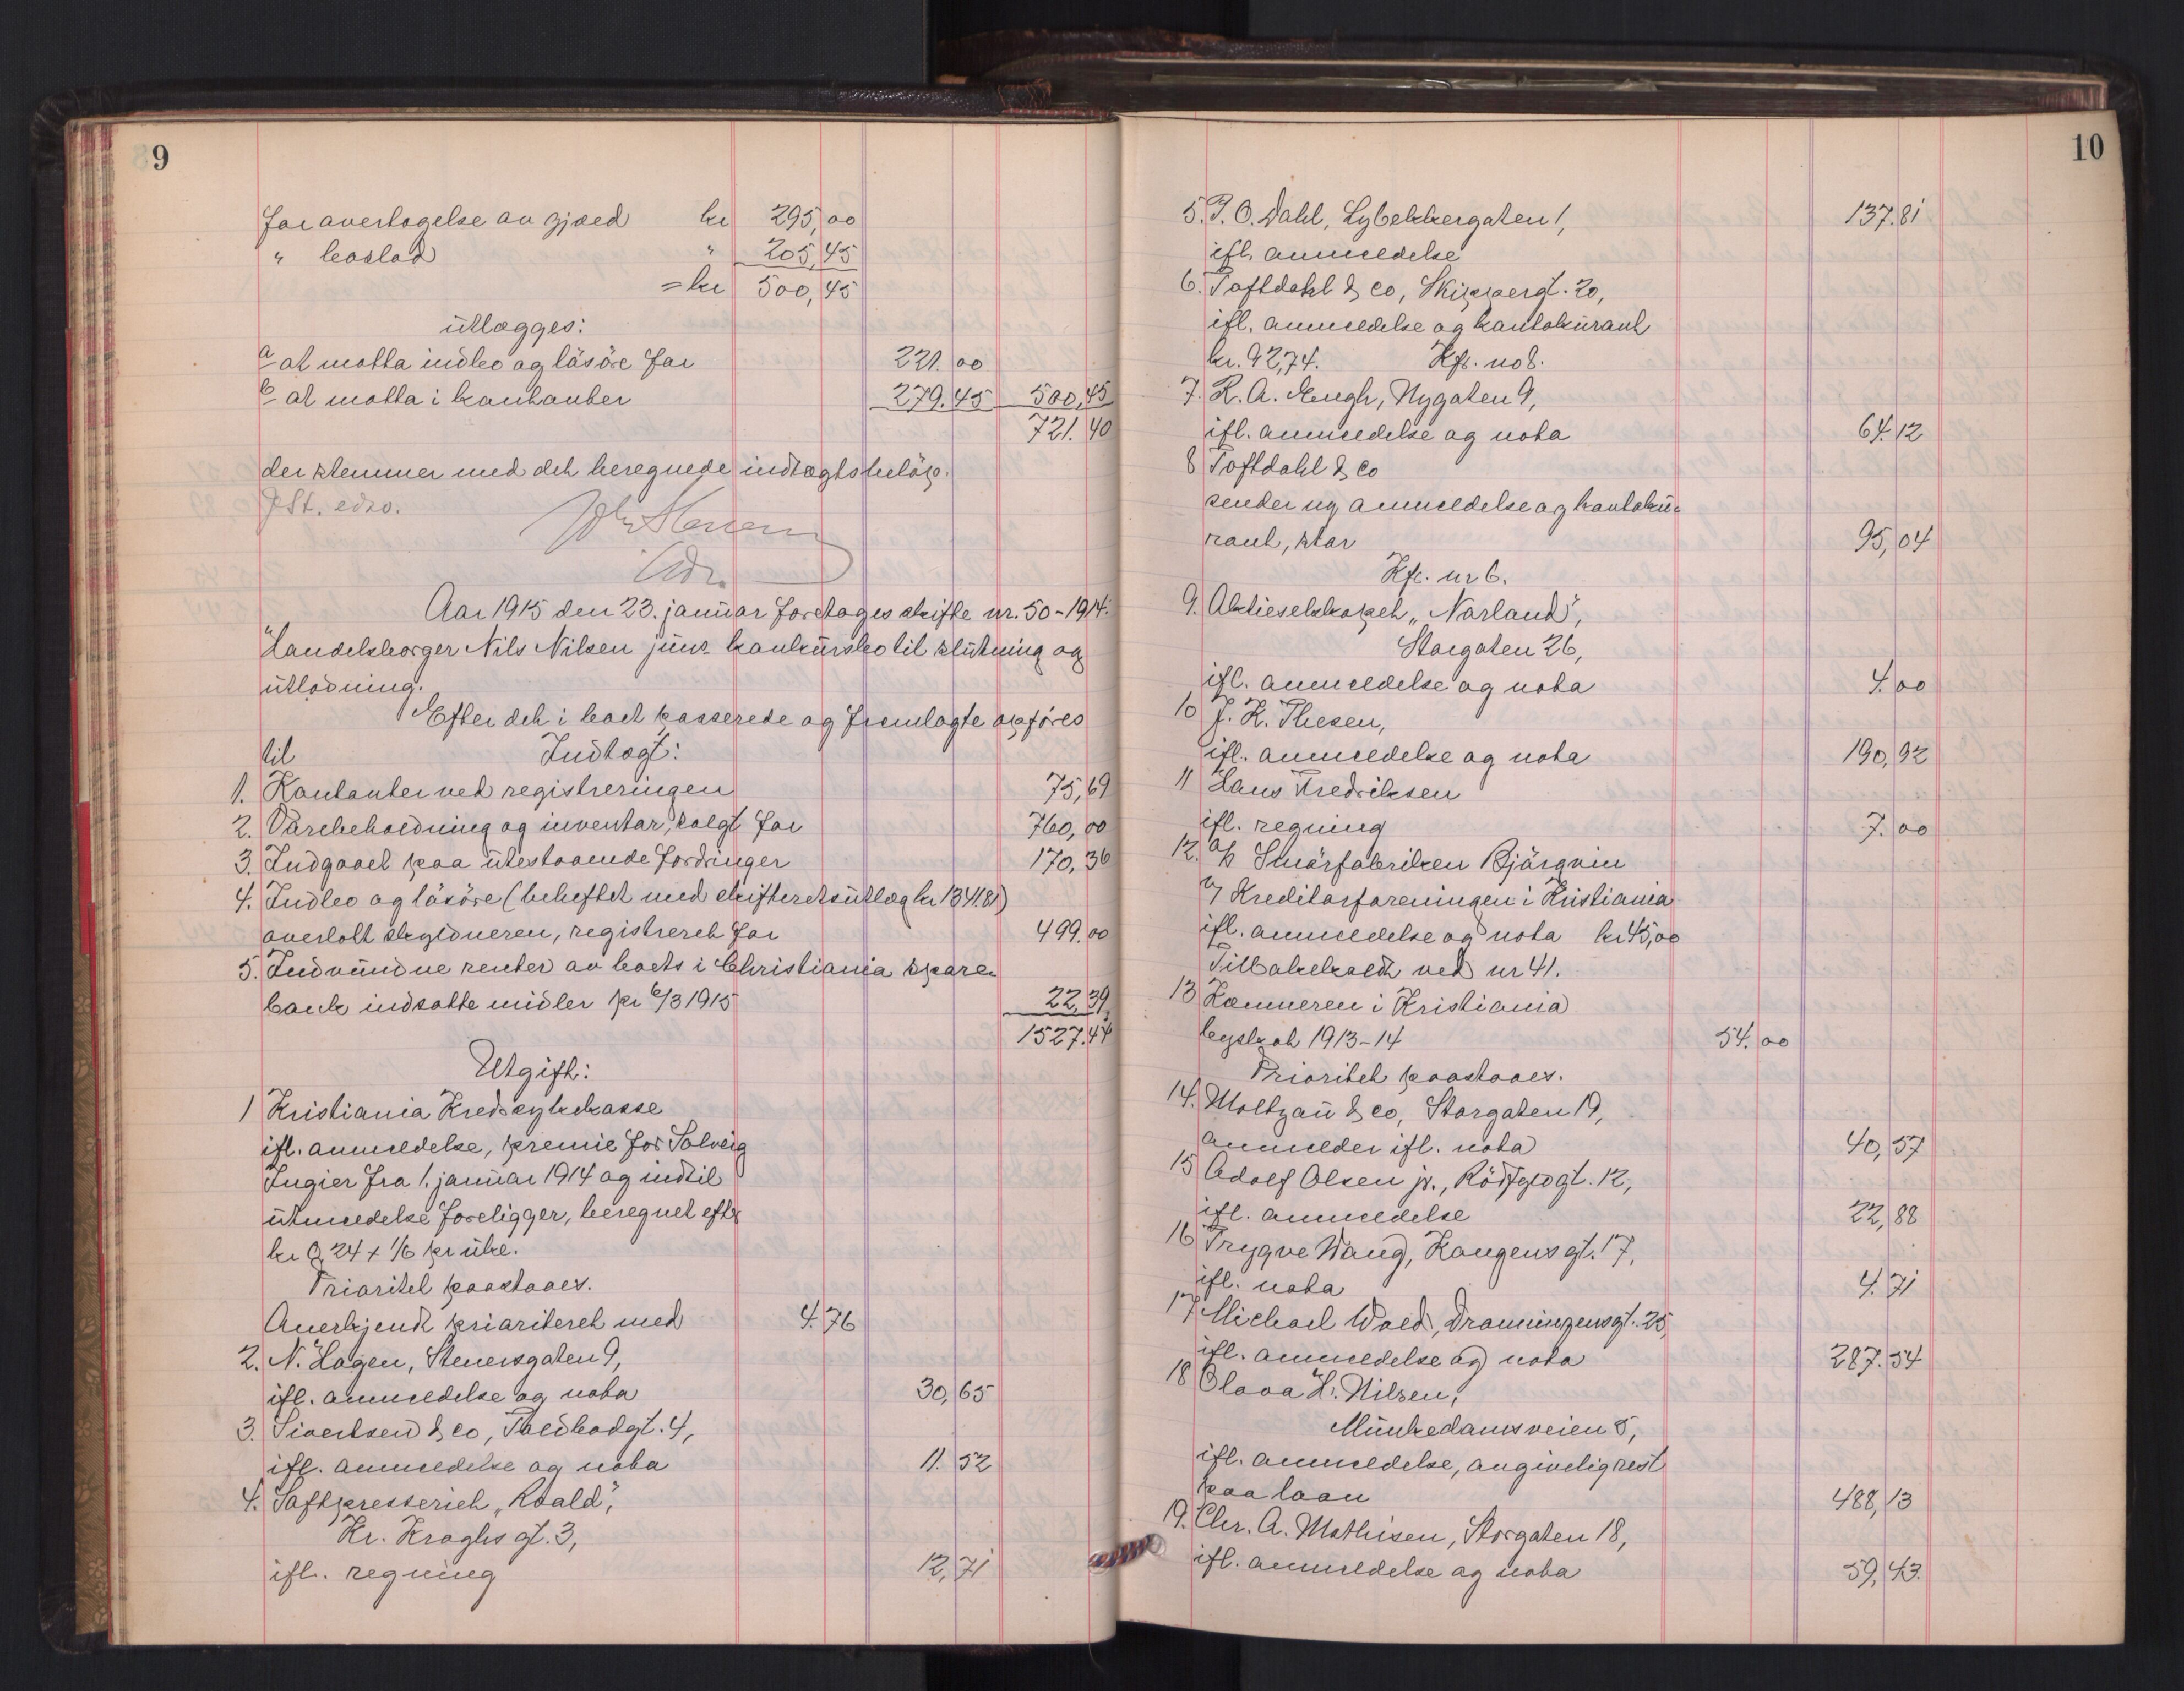 9
for overtagelse av gjæld kr 295,00
" boslod " 205,45
= kr 500,45
utlægges:
a at motta indbo og løsøre for 221.00
b at motta i kontanter 279.45 500,45
721.40
der stemmer med det beregnede indtægtsbeløp.
Aar 1915 den 23. januar foretages skifte nr. 50-1914:
Handelsborger Nils Nilsen juns konkursbo til slutning og
utlodning.
Efter det i boet passerede og fremlagte opføres
til Indtægt:
1. Kontanter ved registreringen 75,69
2. Varebeholdning og inventar, solgt for 760,00
3. Indgaaet paa utestaaende fordringer 170,36
4. Indbo og løsøre (beheftet med skifteretsutlæg kr 1341.81)
overlatt skyldneren, registreret for 499.00
5. Indvundne renter av boets i Christiania spare-
bank indsatte midler pr 6/3 1915 22,39
1527.44
Utgift:
1 Kristiania Kredssykekasse
ifl. anmeldelse, premie for Solveig
Ingier fra 1. januar 1914 og indtil
utmeldelse foreligger, beregnet efter
kr 0,24 + 1/6 pr uke.
Prioritet paastaaes.
Anerkjendt prioriteret med 4.76
2. N. Hagen, Stenersgaten 9,
ifl. anmeldelse og nota 30,65
3. Sivertsen & co, Toldbodgt. 4,
ifl. anmeldelse og nota 11.52
4. Saftpresseriet "Roald",
Kr. Kroghs gt. 3,
ifl. regning 12,71
10
5. P. O. Dahl, Lybekkergaten 1, 137.81
ifl. anmeldelse
6. Toftdahl & co, Skippergt. 20,
ifl. anmeldelse og kontokurant
kr. 92,74. Kfr. no 8.
7. R. A. Engh, Nygaten 9,
ifl. anmeldelse og nota 64.12
8 Toftdahl & co
sender ny anmeldelse og kontoku-
rant, stor 95,04
Kfr. nr 6.
9. Aktieselskapet "Norland",
Storgaten 26,
ifl. anmeldelse og nota 4.00
10 J. K. Thesen,
ifl. anmeldelse og nota 190,92
11 Hans Fredriksen
ifl. regning 7.00
12. a/s Smørfabriken Bjørgvin
v/ Kreditorforeningen i Kristiania
ifl. anmeldelse og nota kr 45,00
Tilbakekaldt ved nr 41.
13 Kæmneren i Kristiania
byskat 1913-14 54.00
Prioritet paastaaes.
14. Moltzau & co, Storgaten 19,
anmelder ifl. nota 40,57
15 Adolf Olsen jr., Rødfyldgt. 12,
ifl. anmeldelse 22,88
16 Trygve Wang, Kongens gt. 17,
ifl. nota 4.71
17 Michael Wold, Dronningensgt. 25,
ifl. anmeldelse og nota 287.54
18 Olava H. Nilsen,
Munkedamsveien 5,
ifl. anmeldelse, angivelig rest
paa laan 488,13
19. Chr. A. Mathisen, Storgaten 18,
ifl. anmeldelse og nota 59,43.